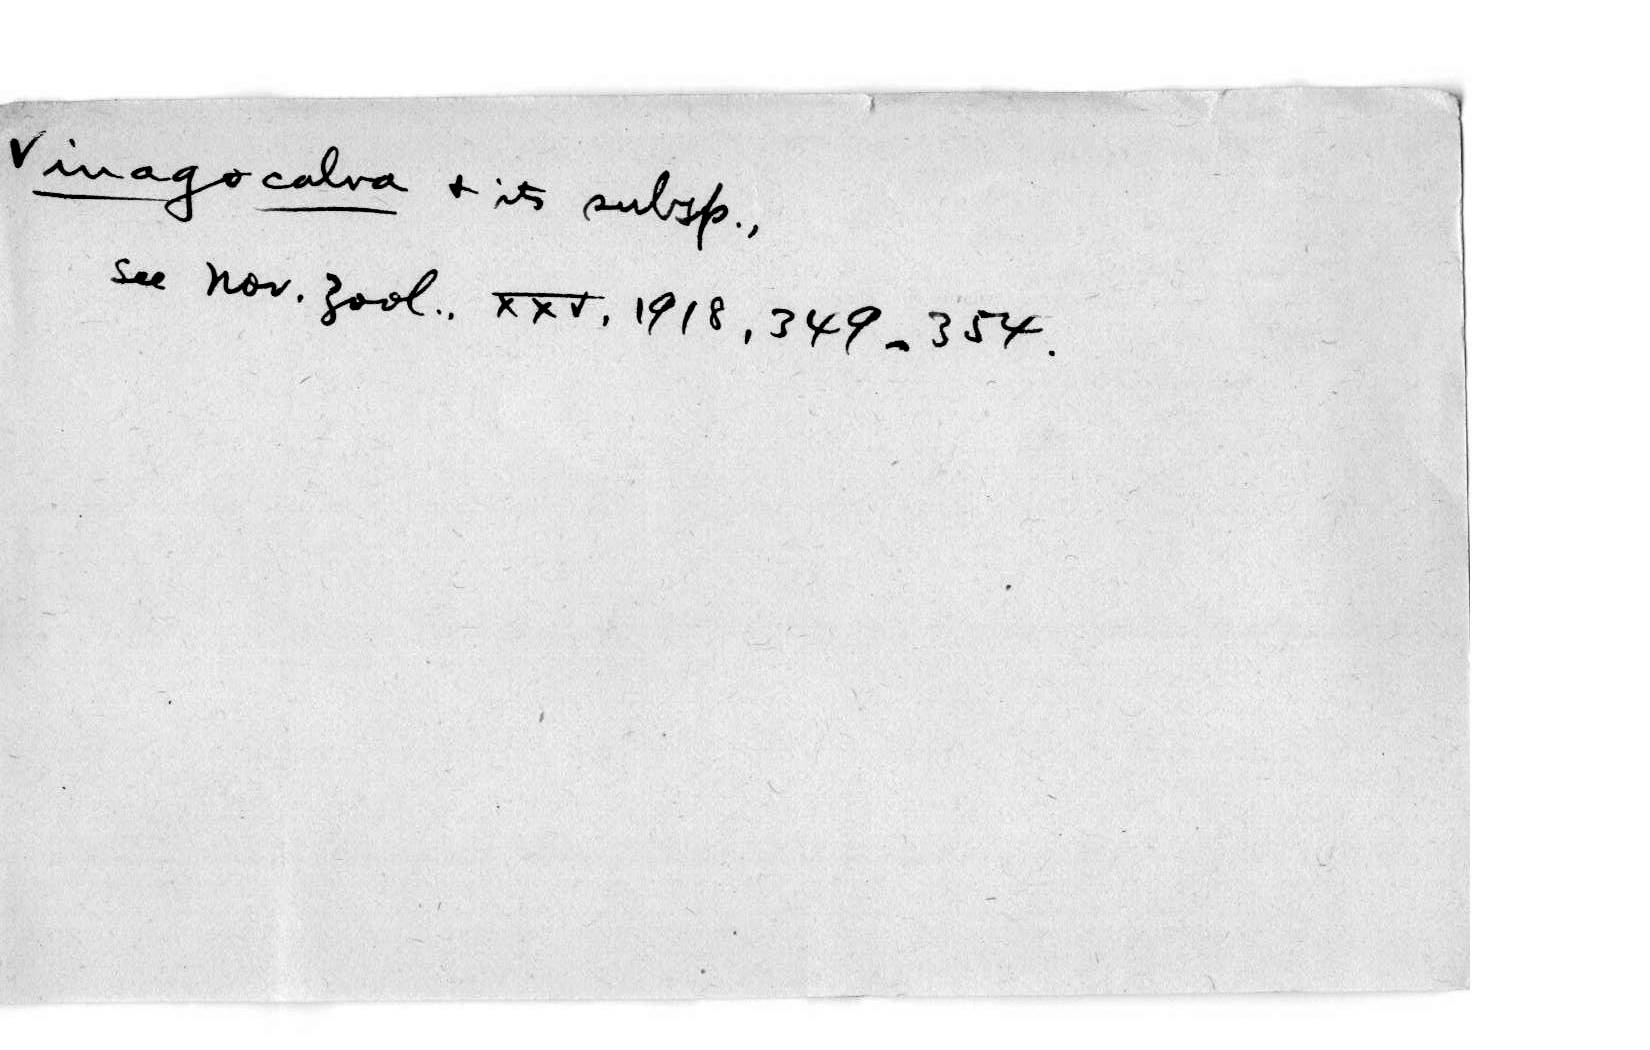 Vinago calva + its subsp.,
see Nov. Zool., XXV, 1918, 349-354.